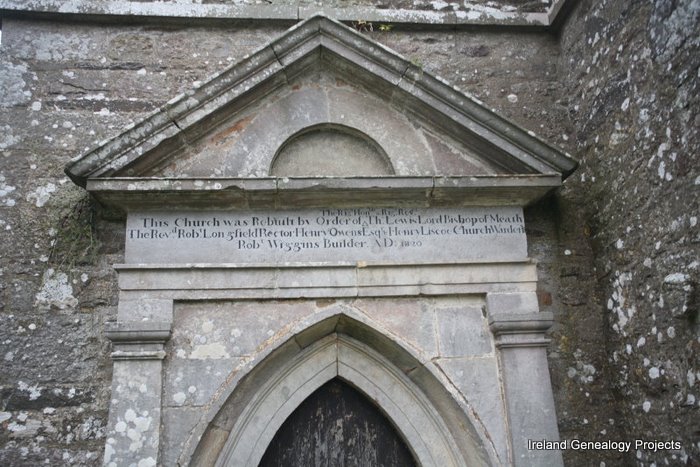 The Rig. Hon.ble & Rig. Rev.d
This Church was Rebuilt by Order of Th. Lewis Lord Bishop of Meath
The Rev.d Rob.t Longfield Rector Henry Owens Esq.r & Henry Liscoe Church Warden
Rob.t Wiggins Builder. A.D. 1820
Ireland Genealogy Projects